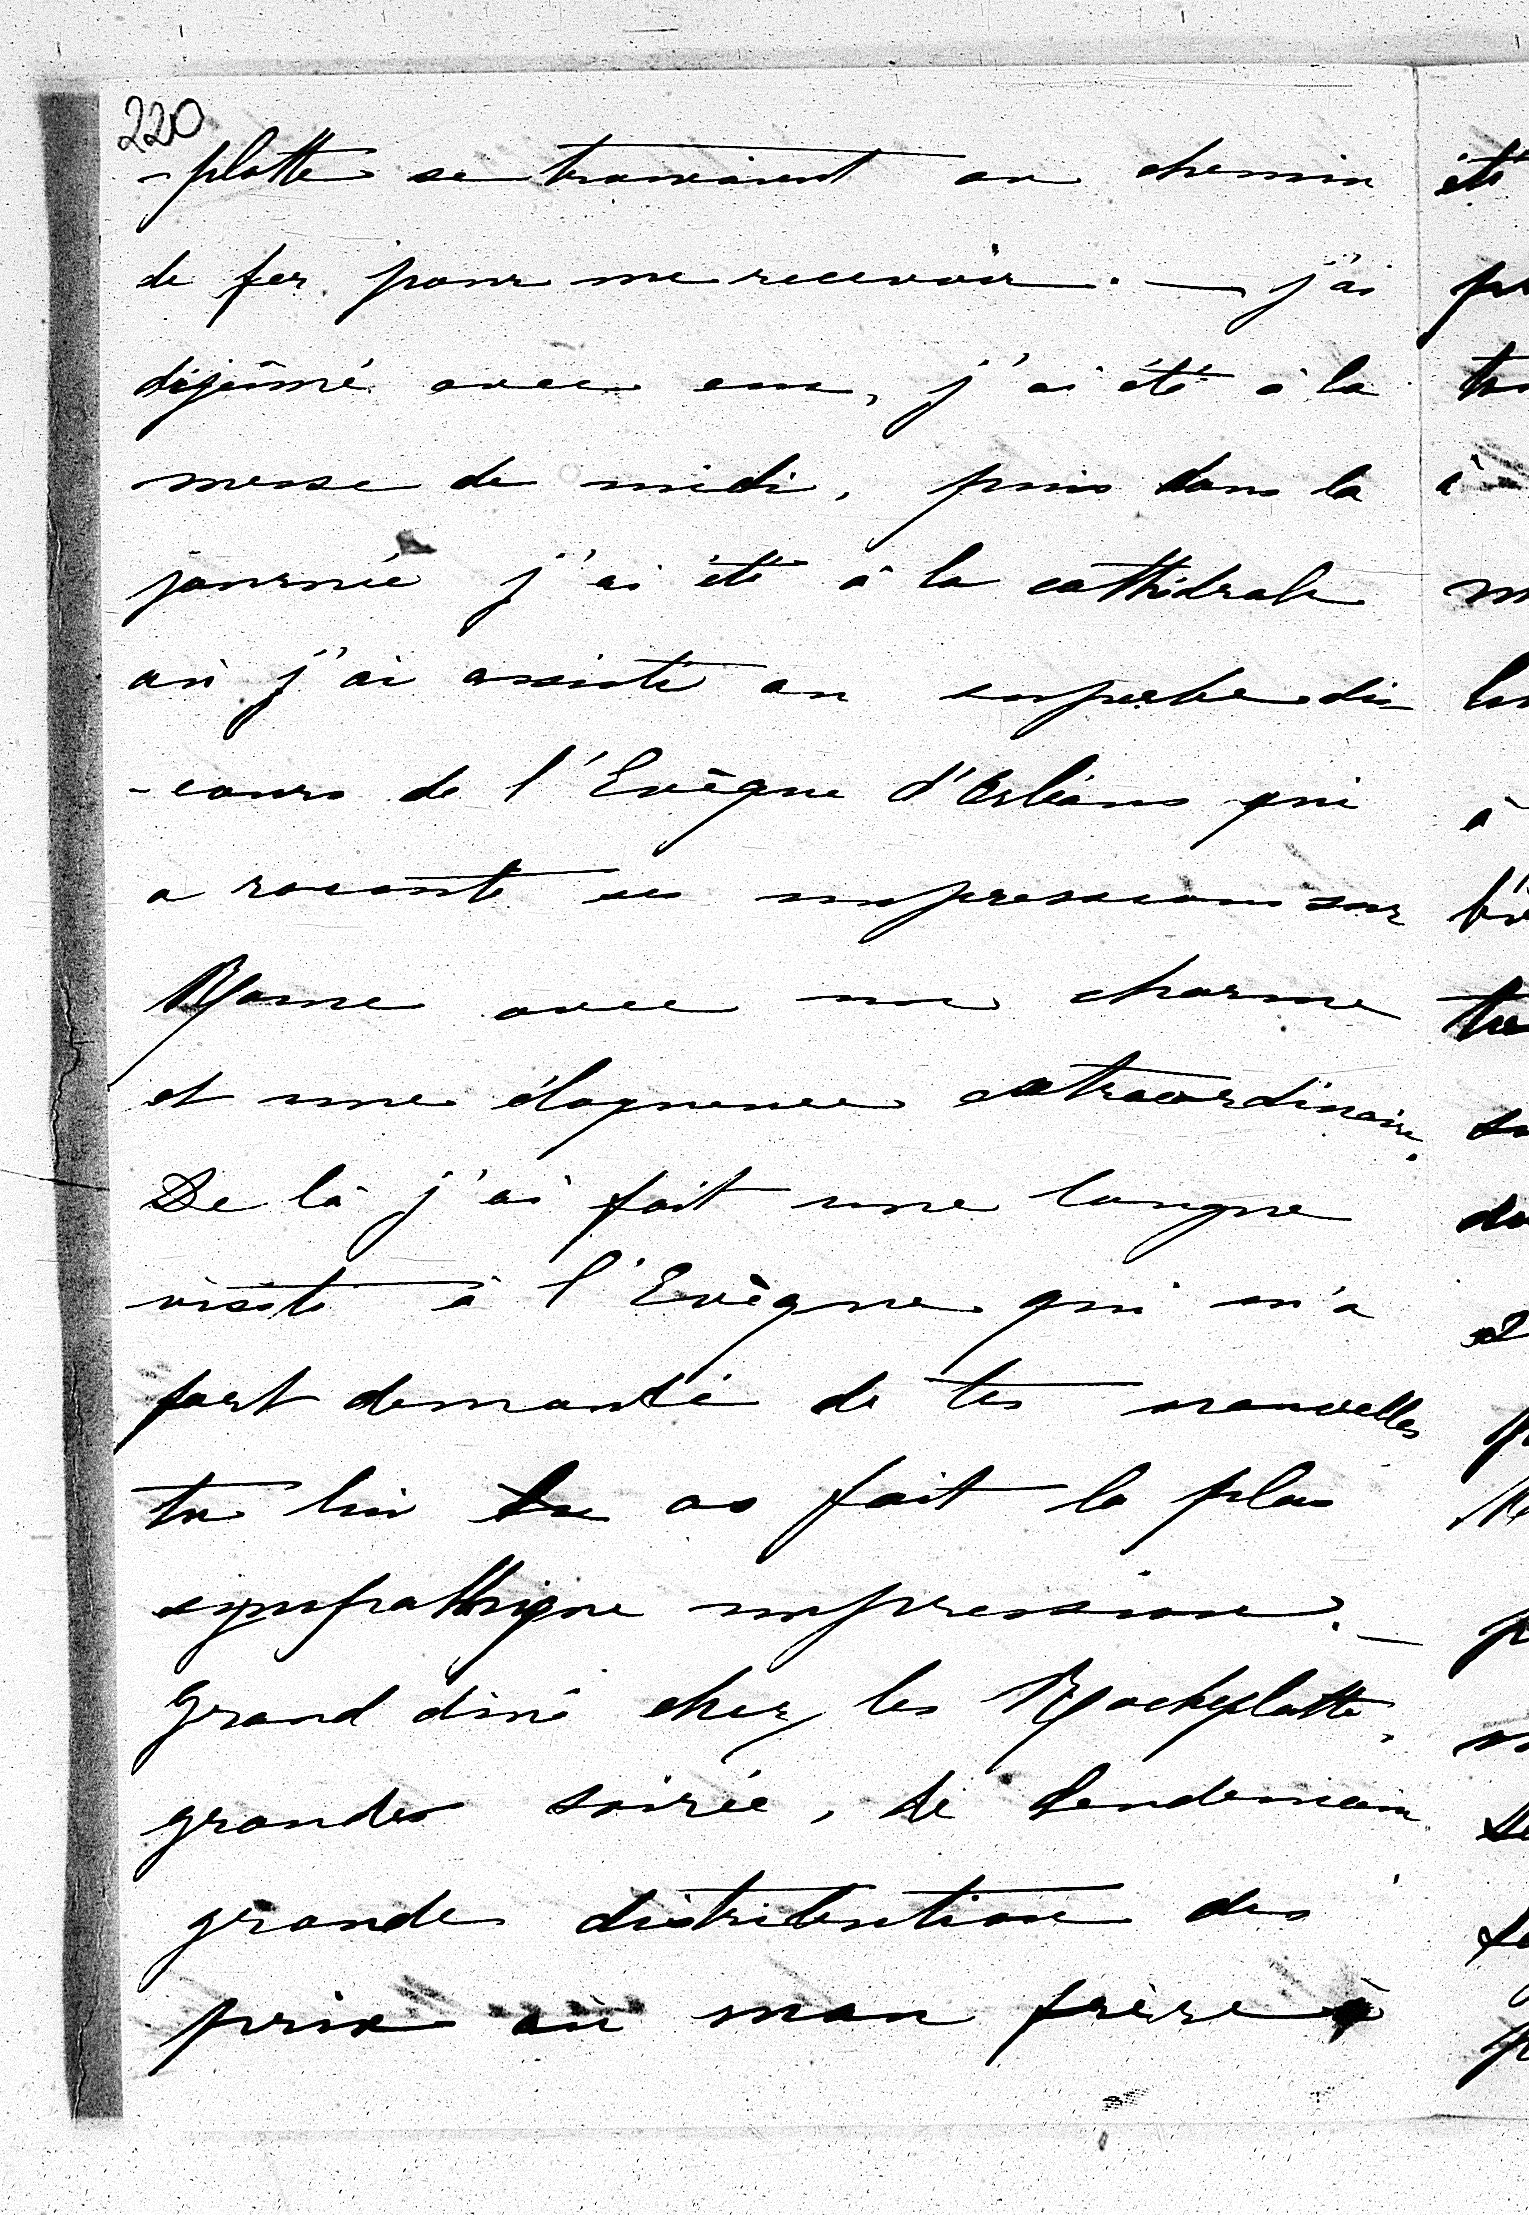 220
-platte se trouvaient au chemin
de fer pour me recevoir. — j'ai
déjeûné avec eux, j'ai été à la
messe de midi, puis dans la
journée j'ai été à la cathédrale
où j'ai assisté au superbe dis
-cours de l'Evèque d'Orléans qui
a raconté ses impressions sur
Rome avec un charme
et une éloquence extraordinaire.
De là j'ai fait une longue
visite à l'Evèque qui m'a
fort demandé de tes nouvelles
tu lui as fait la plus
sympathique impression. —
Grand diné chez les Rocheplatte,
grande soirée, le lendemain
grande distribution des
prix où mon frère